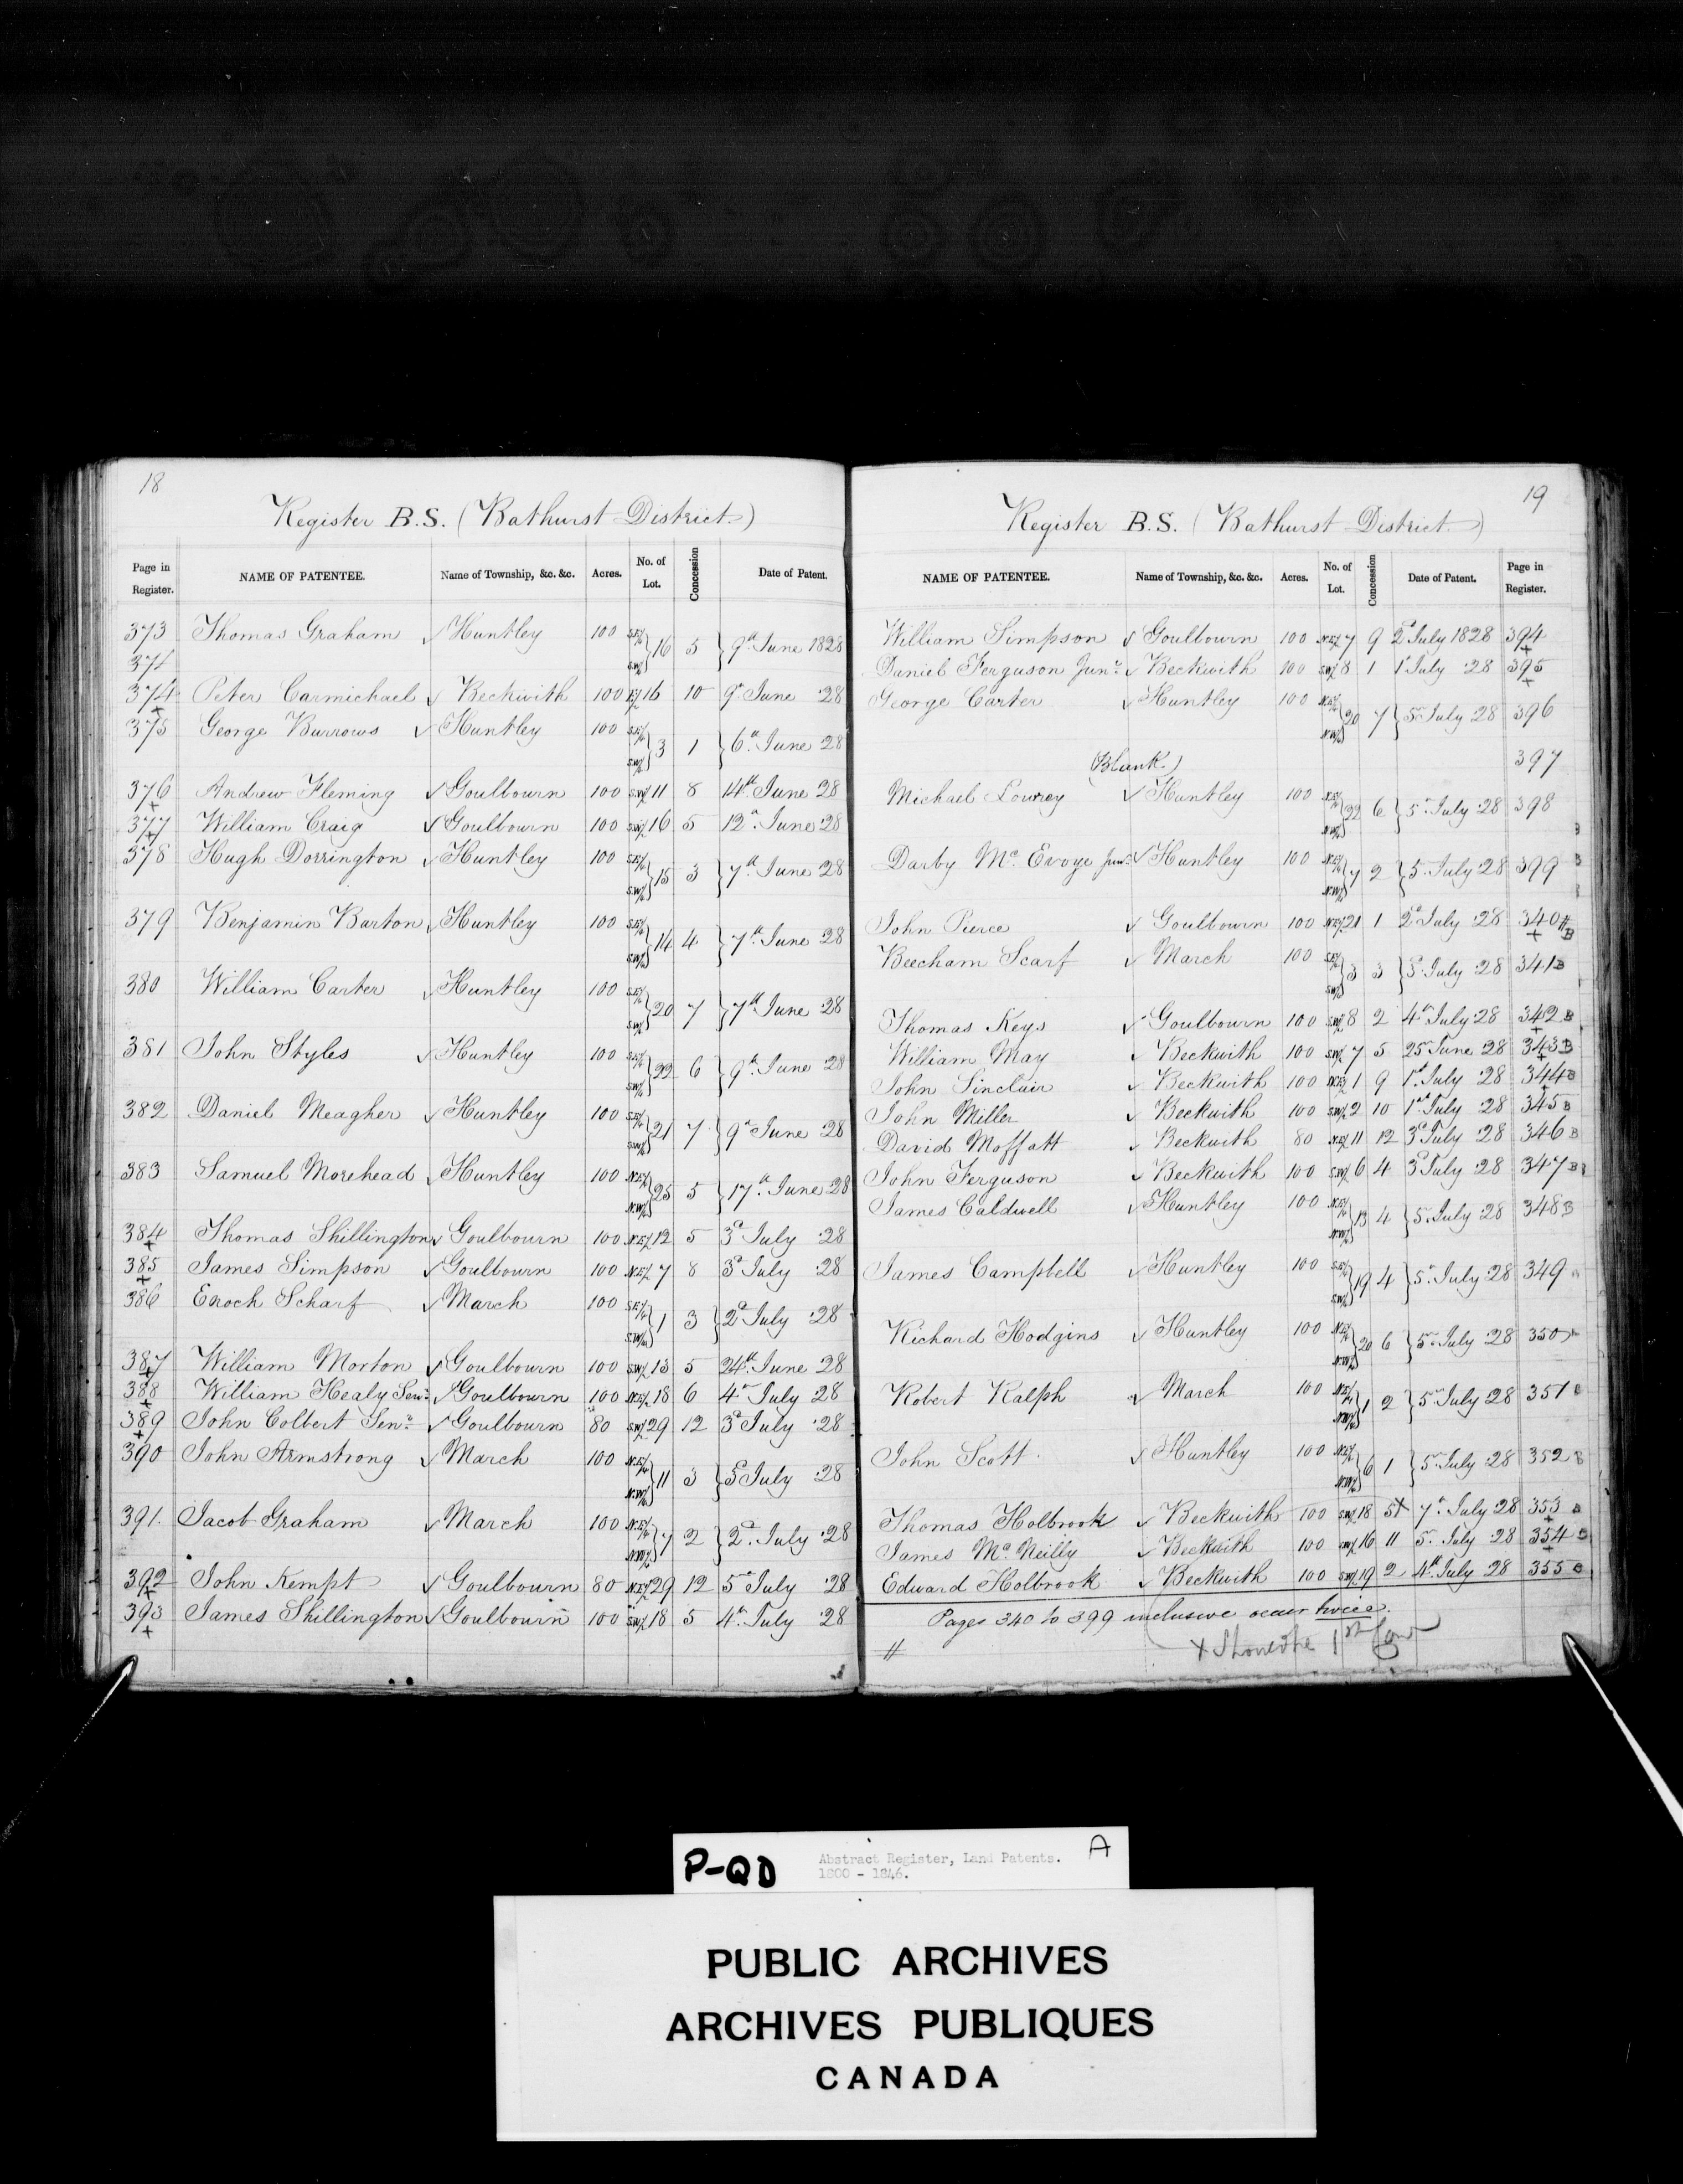 18
Register B.S. (Bathurst District)
Page in Register. NAME OF PATENTEE. Name of Township, &c. &c. Acres. No. of Lot. Concession Date of Patent.
373 Thomas Graham ✓ Huntley 100 S.E½ S.W½ } 16 5 } 9th June 1828
374
374 Peter Carmichael ✓ Beckwith 100 16 10 9th June 28
+
375 George Burrows ✓ Huntley 100 S.E½ S.W½ } 3 1 } 6th June 28
376 Andrew Fleming ✓ Goulbourn 100 S.W½ 11 8 14th June 28
+
377 William Craig ✓ Goulbourn 100 S.W½ 16 5 12th June 28
+
378 Hugh Dorrington ✓ Huntley 100 S.E½ S.W½ } 15 3 } 7th June 28
379 Benjamin Barton ✓ Huntley 100 S.E½ S.W½ } 14 4 } 7th June 28
380 William Carter ✓ Huntley 100 S.E½ S.W½ } 20 7 } 7th June 28
381 John Styles ✓ Huntley 100 S.E½ S.W½ } 22 6 } 9th June 28
382 Daniel Meagher ✓ Huntley 100 S.E½ S.W½ } 21 7 } 9th June 28
383 Samuel Morehead ✓ Huntley 100 N.E½ N.W½ } 25 5 } 17th June 28
384 Thomas Shillington ✓ Goulbourn 100 N.E½ 12 5 3d July 28
+
385 James Simpson ✓ Goulbourn 100 N.E½ 7 8 3d July 28
+
386 Enoch Scharf ✓ March 100 S.E½ S.W½ } 1 3 } 2d July 28
387 William Morton ✓ Goulbourn 100 S.W½ 13 5 24th June 28
+
388 William Healy Senr ✓ Goulbourn 100 N.E½ 18 6 4th July 28
+
389 John Colbert Senr ✓ Goulbourn 80 S.W½ 29 12 3d July 28
+
390 John Armstrong ✓ March 100 N.E½ N.W½ } 11 3 } 3d July 28
391 Jacob Graham ✓ March 100 N.E½ N.W½ } 7 2 } 2d July 28
392 John Kempt ✓ Goulbourn 80 N.E½ 29 12 5th July 28
+
393 James Shillington ✓ Goulbourn 100 S.W½ 18 5 4th July 28
+
19
Register B.S. (Bathurst District)
NAME OF PATENTEE. Name of Township, &c. &c. Acres. No. of Lot. Concession Date of Patent. Page in Register.
William Simpson ✓ Goulbourn 100 N.E½ 7 9 2d July 1828 394
+
Daniel Ferguson Junr ✓ Beckwith 100 S.W½ 8 1 1st July 28 395
+
George Carter ✓ Huntley 100 N.E½ N.W½ } 20 7 } 5th July 28 396
(Blank.) 397
Michael Lowrey ✓ Huntley 100 N.E½ N.W½ } 22 6 } 5th July 28 398
Darby Mc Evoye Junr ✓ Huntley 100 N.E½ N.W½ } 7 2 } 5 July 28 399 B
John Pierce ✓ Goulbourn 100 N.E½ 21 1 2d July 28 340 # B
+
Beecham Scarf ✓ March 100 S.E½ S.W½ } 3 3 } 3d July 28 341 B
Thomas Keys ✓ Goulbourn 100 S.W½ 8 2 4th July 28 342 B
+
William May ✓ Beckwith 100 S.W½ 7 5 25th June 28 343 B
+
John Sinclair ✓ Beckwith 100 N.E½ 1 9 1st July 28 344 B
+
John Miller ✓ Beckwith 100 S.W½ 2 10 1st July 28 345 B
David Moffatt ✓ Beckwith 80 N.E½ 11 12 3d July 28 346 B
John Ferguson ✓ Beckwith 100 S.W½ 6 4 3d July 28 347 B
James Caldwell ✓ Huntley 100 N.E½ N.W½ } 13 4 } 5th July 28 348 B
James Campbell ✓ Huntley 100 S.E½ S.W½ } 19 4 } 5th July 28 349
Richard Hodgins ✓ Huntley 100 N.E½ N.W½ } 20 6 } 5th July 28 350
Robert Ralph ✓ March 100 N.E½ N.W½ } 1 2 } 5th July 28 351
John Scott ✓ Huntley 100 N.E½ N.W½ } 6 1 } 5th July 28 352 B
Thomas Holbrook ✓ Beckwith 100 S.W½ 18 5 x 7th July 28 353 B
+
James Mc Neilly ✓ Beckwith 100 S.W½ 16 11 5th July 28 354 B
+
Edward Holbrook ✓ Beckwith 100 S.W½ 19 2 4th July 28 355 B
# Pages 340 to 399 inclusive occur twice.
x Should be 1st Con
P-QD
Abstract Register, Land Patents.
1800 - 1846.
A
PUBLIC ARCHIVES
ARCHIVES PUBLIQUES
CANADA